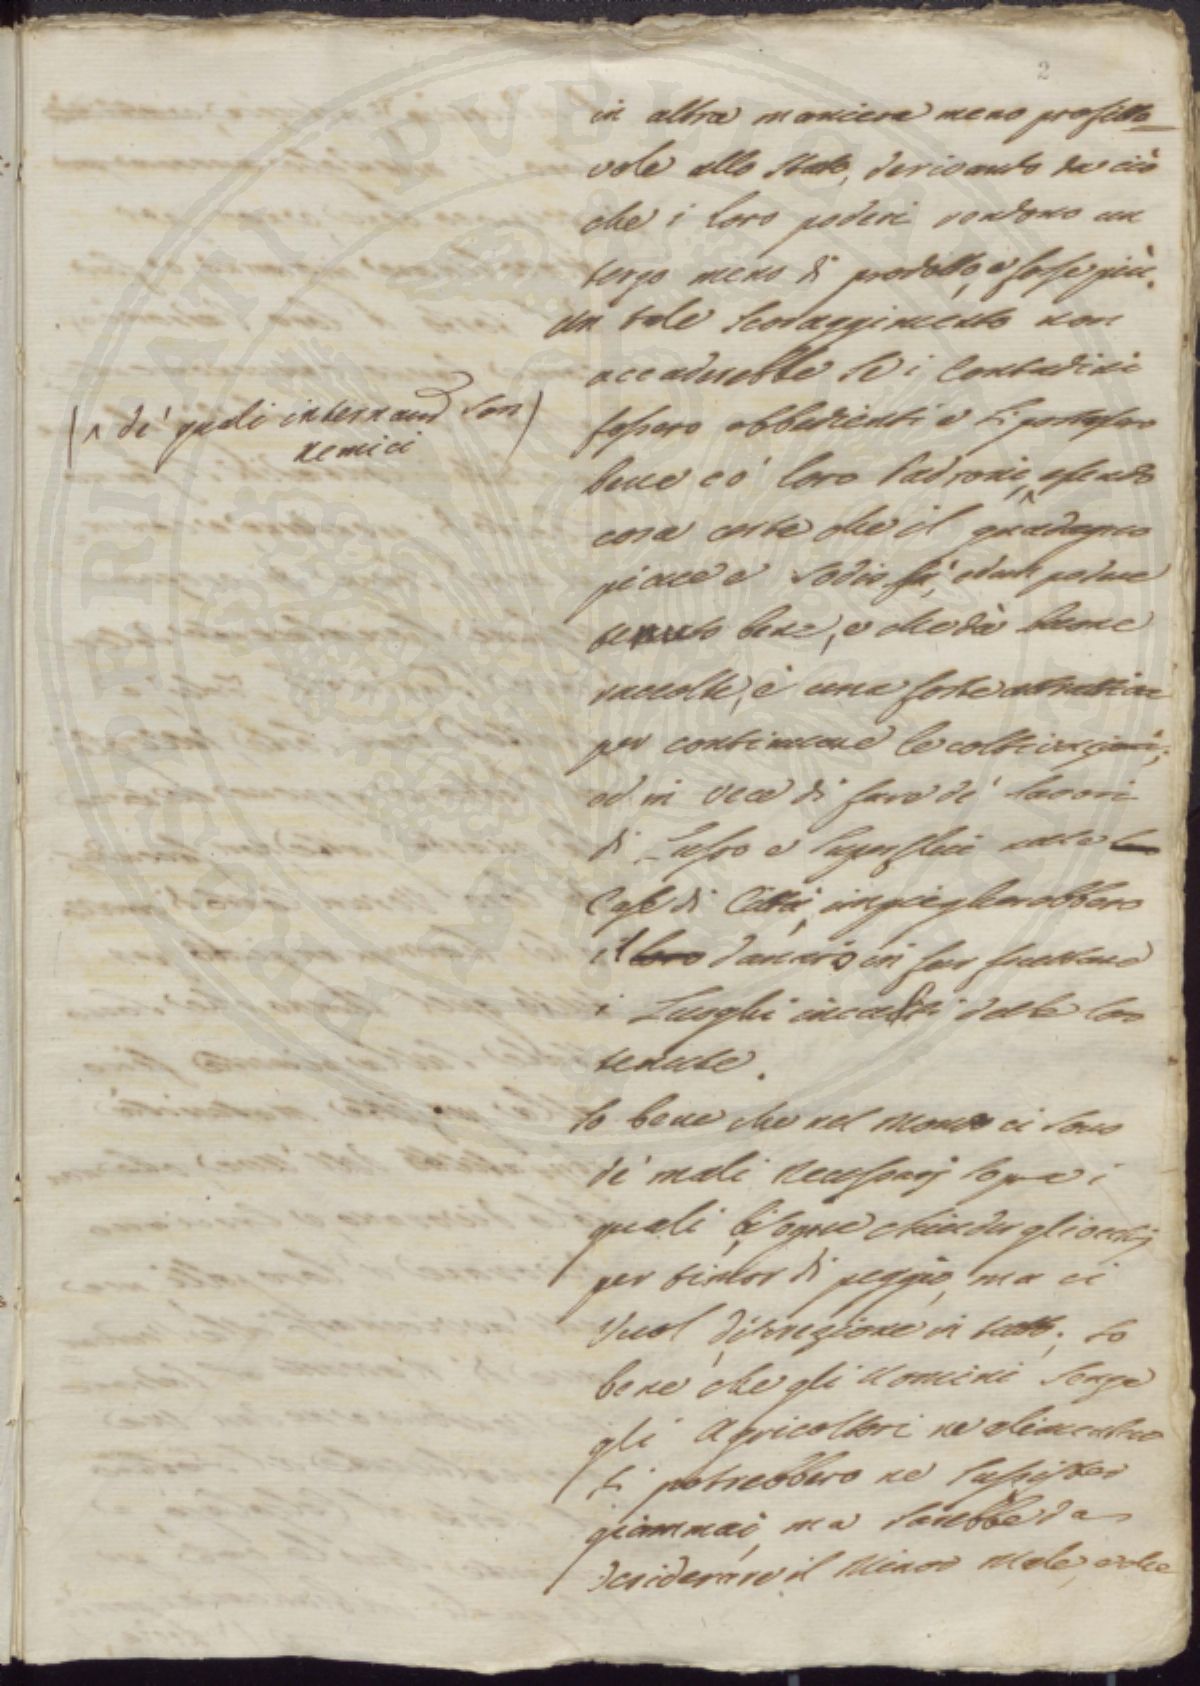 2
in altra maniera meno profitte
vole allo Stato, derivando da ciò
che i loro poderi rendono un
terzo meno di prodotto, e forse più.
Un tale scoraggimento non
accaderebbe se i Contadini
fossero obbedienti e si portassero
bene co' loro Padroni, essendo
(^ de' quali internamᵉ son
nemici)
cosa certe che il guadagno
piace e sodisfà, ed un podere
tenuto bene, e che dà buone
raccolte, è una forte attrattiva
per continuare le coltivazioni;
ed in vece di fare de' lavori
di Lusso e superflui nelle
Case di Città, impiegherebbero
il loro danaro in far fruttare
i Luoghi incolti delle loro
tenute.
So bene che nel Mondo ci sono
de' mali necessarj sopra i
quali bisogna chiuder gli occhj
per timor di peggio, ma ci
vuol discrezione in tutto; so
bene che gli uomini senza
gli Agricoltori ne alimentar
si potrebbero ne sussister
giammai, ma sarebbe da
desiderare il minor male, e che